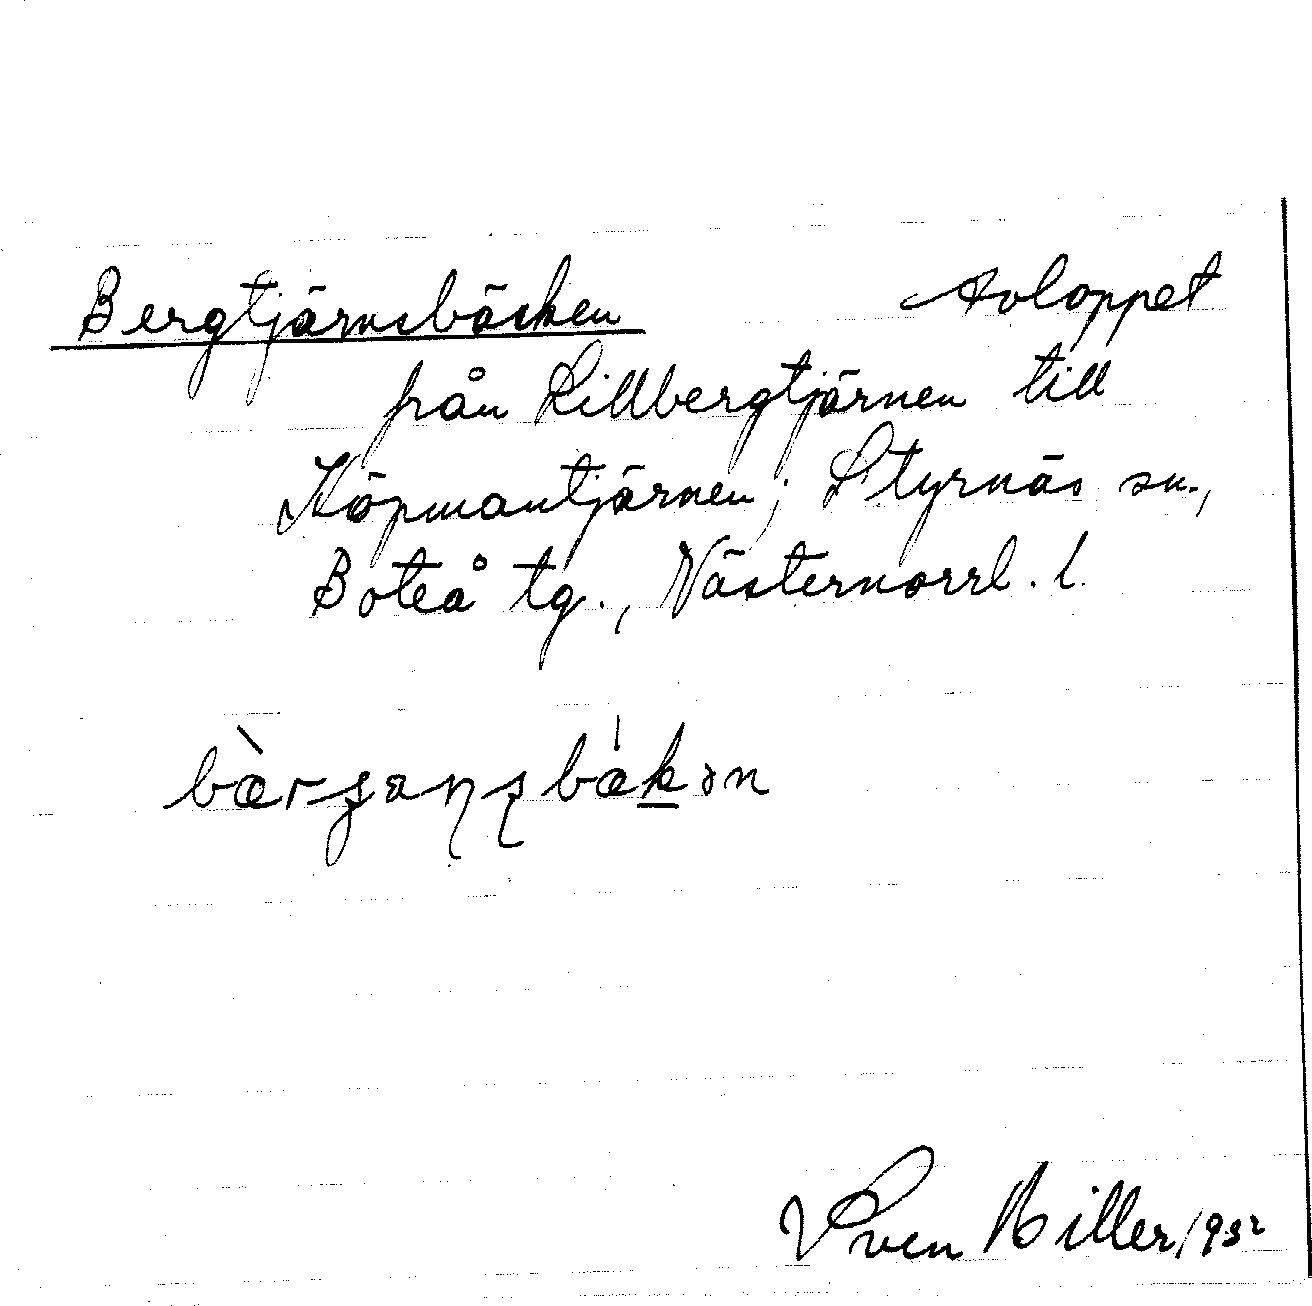 Bergtjärnsbäcken Avloppet
från Lillbergtjärnen till
Köpmantjärnen; Styrnäs sn.,
Boteå tg., Västernorrl. l.
bæ̀rʂaɳʂbækən
Sven Hiller 1932